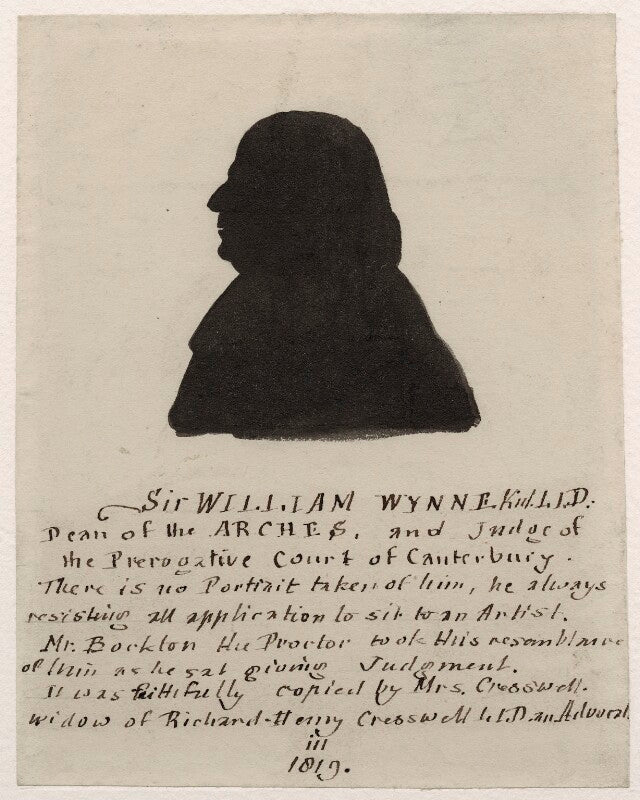 Sir WILLIAM WYNNE Knt. LLD.
Dean of the ARCHES, and Judge of
the Prerogative Court of Canterbury.
There is no Portrait taken of him, he always
resisting all application to sit to an Artist.
Mr. Bockton the Proctor took this resemblance
of him as he sat giving Judgment.
It was faithfully copied by Mrs. Cresswell.
widow of Richard-Henry Cresswell LLD. an Advocat
in
1819.